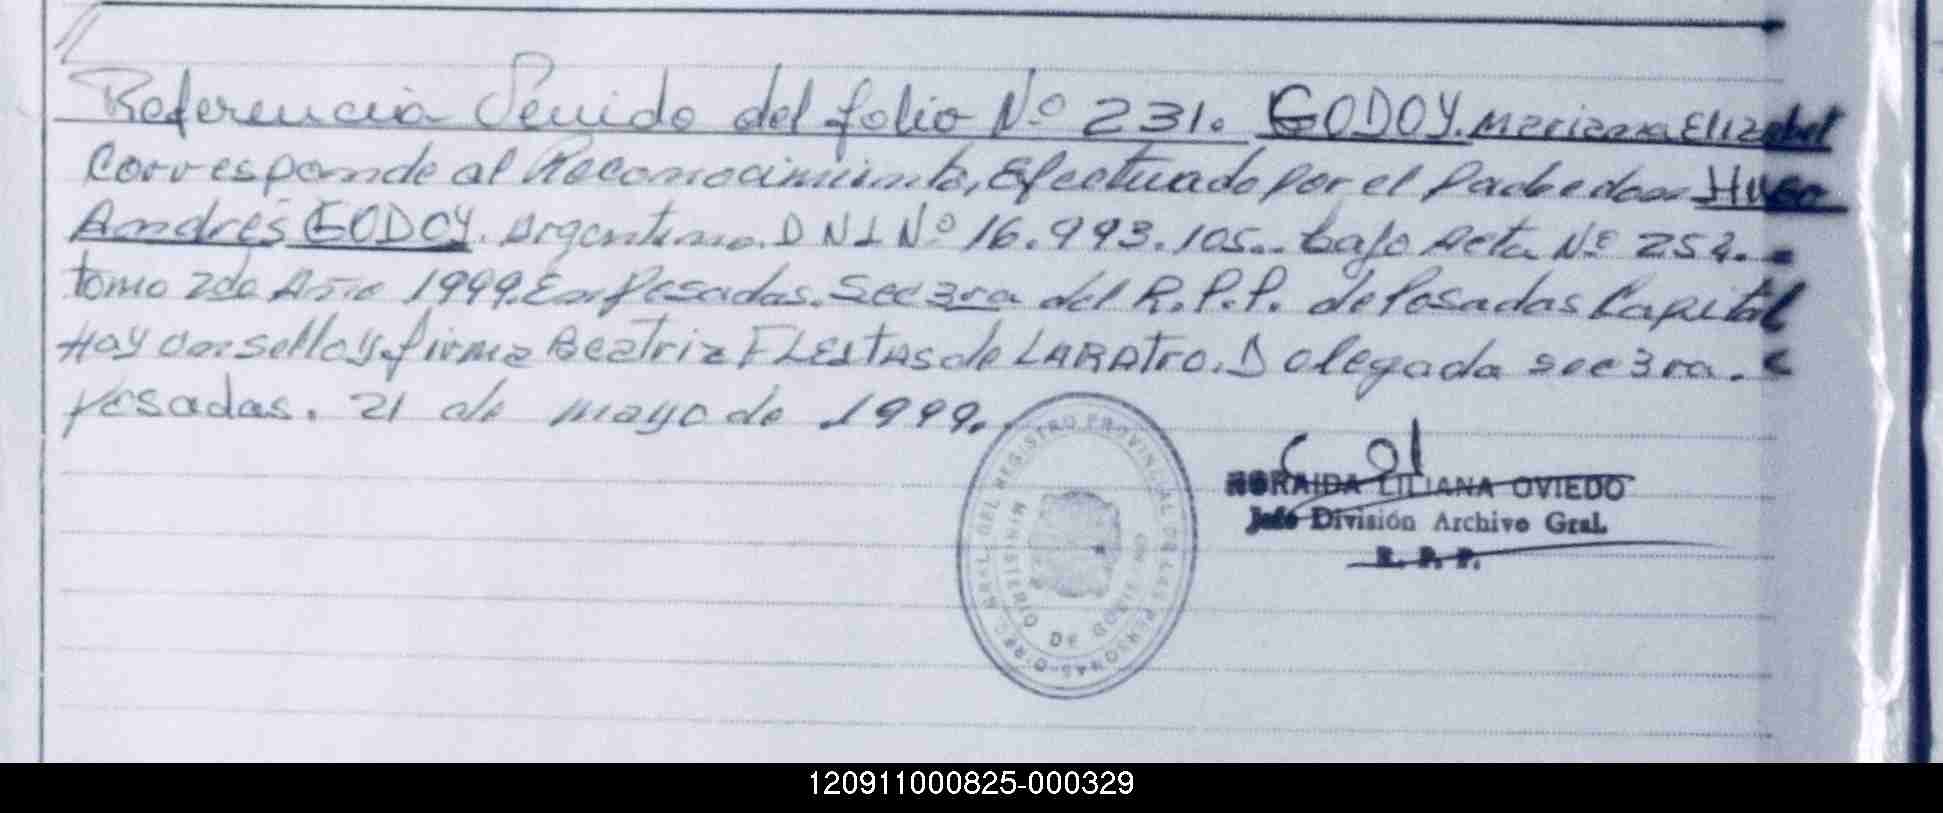 Referencia Venido del folio Nº 231. GODOY. Mariana Elizabet
Corresponde al Reconocimiento, Efectuado por el Padre don Hugo
Andrés GODOY. Argentino. DNI Nº 16.993.105.. bajo Acta Nº 252..
tomo 2do Año 1999. En Posadas. Sec 3ra del R.P.P. de Posadas Capital
Hay un sello y firma Beatriz FLEITAS de LARATRO. Delegada sec 3ra.
Posadas. 21 de mayo de 1999.
DIREC. GRAL. DEL REGISTRO PROVINCIAL DE LAS PERSONAS
MINISTERIO DE GOBIERNO
LILIANA OVIEDO
Jefe División Archivo Gral.
R. P. P.
120911000825-000329